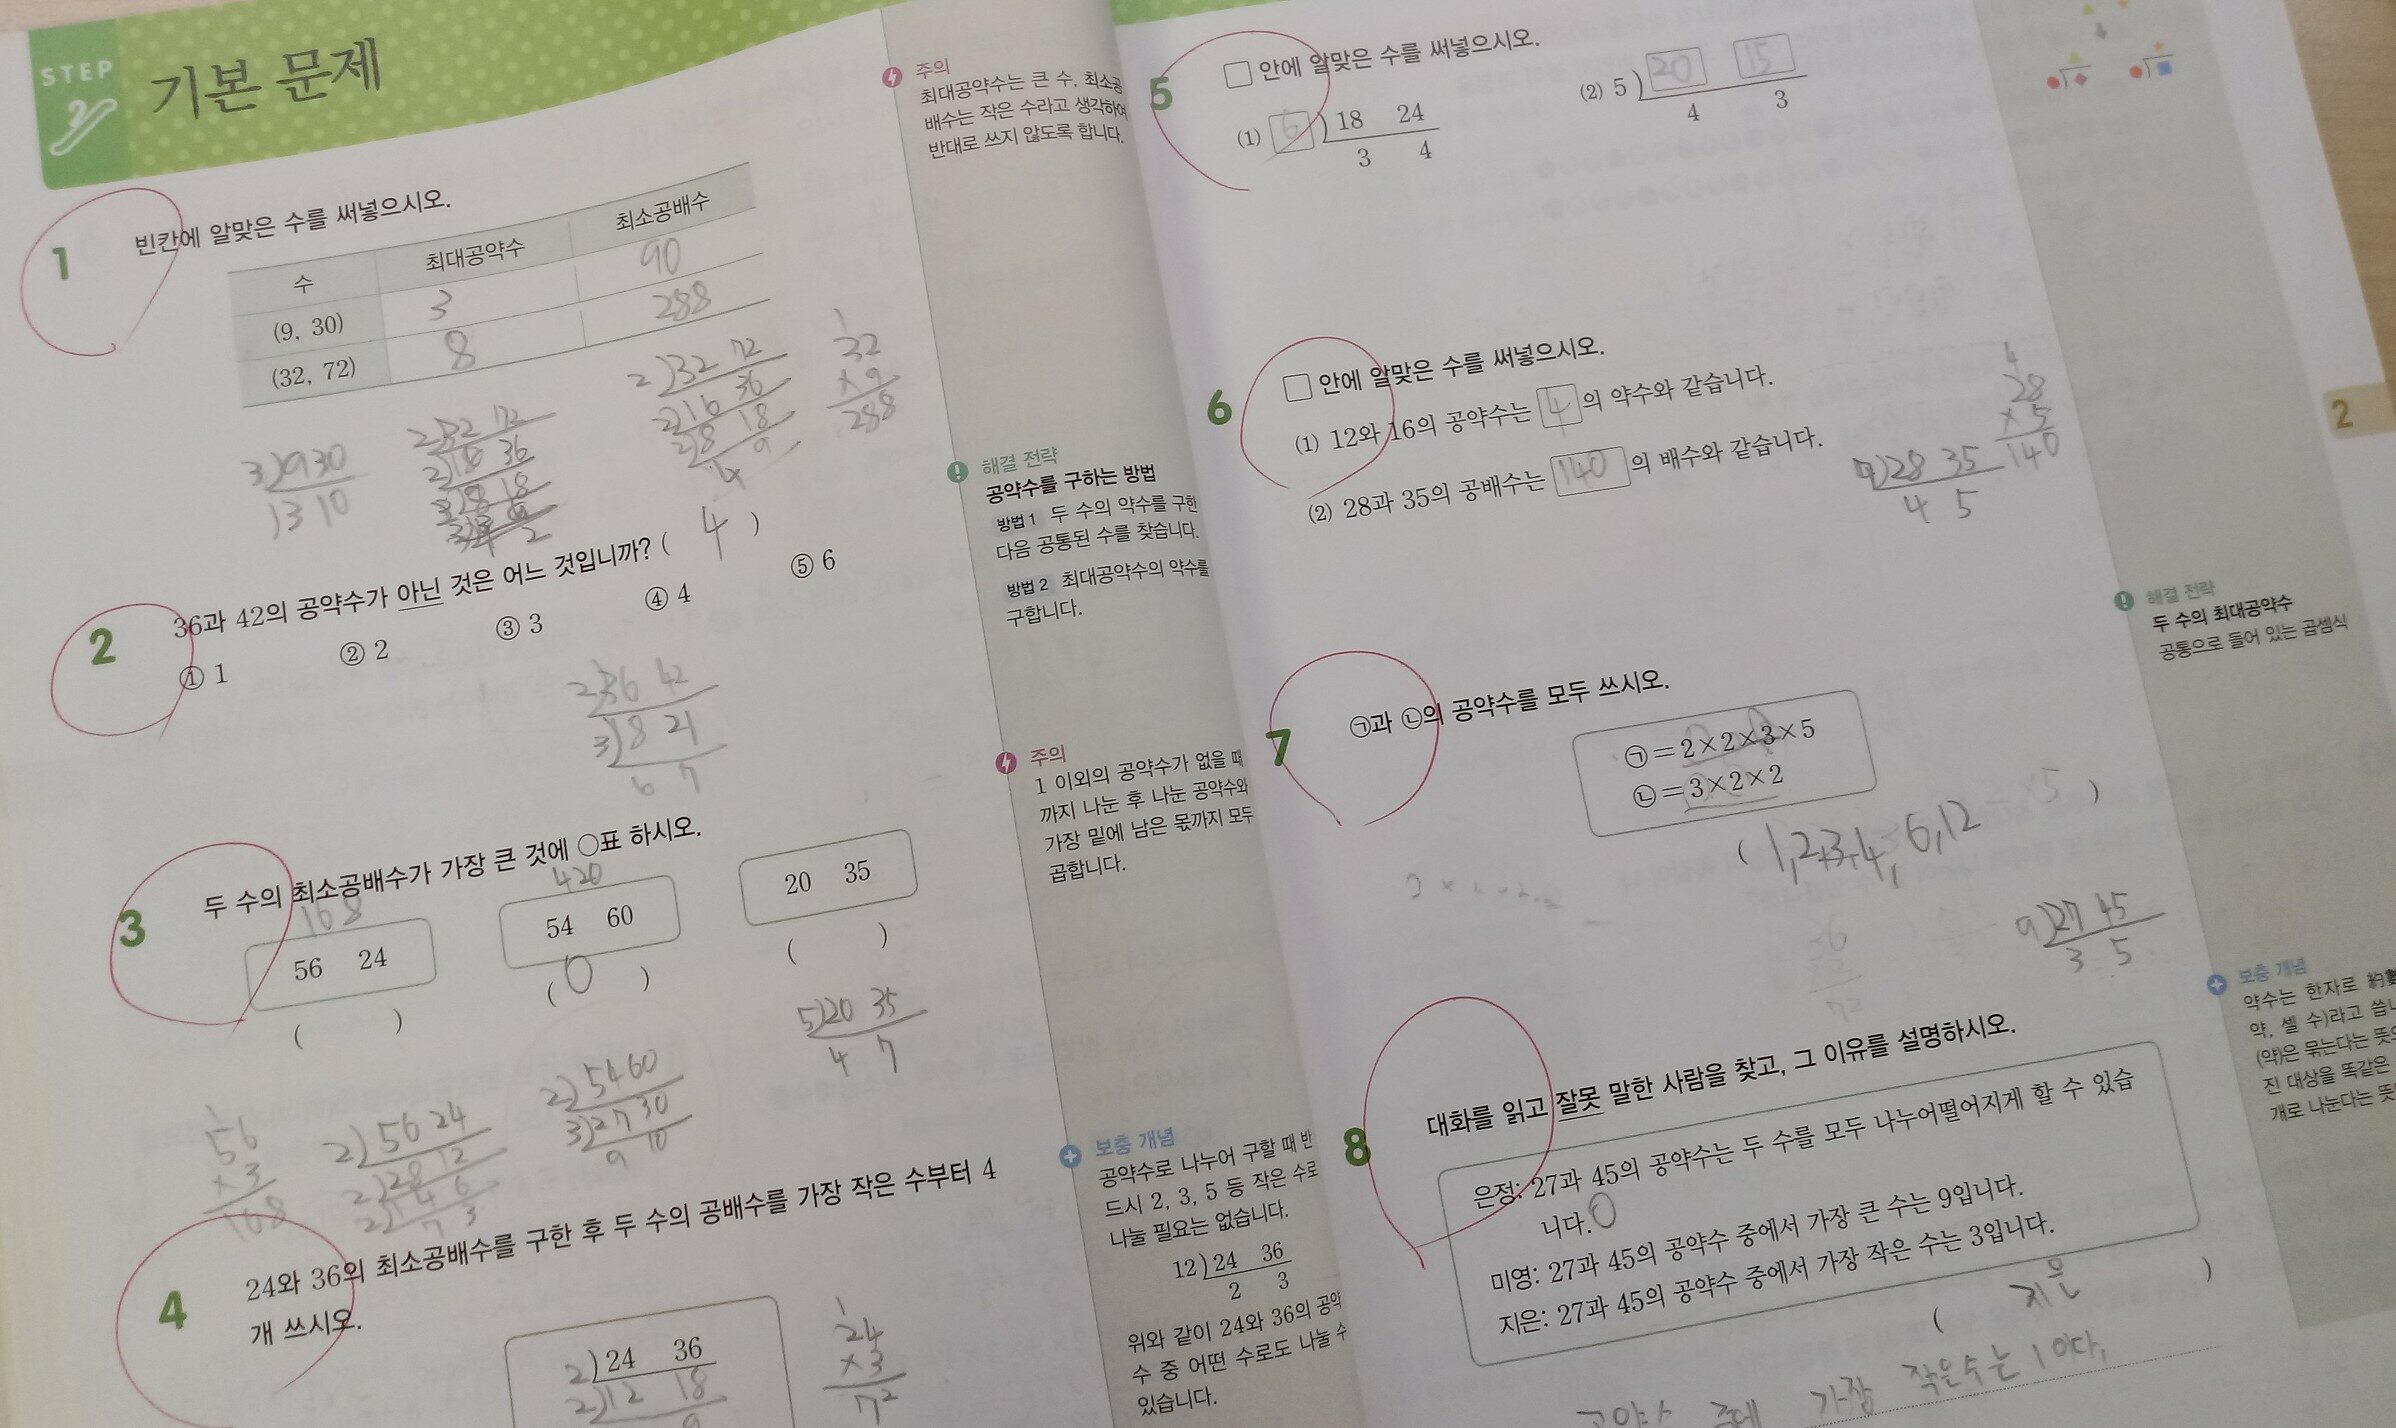 STEP
2
기본 문제
1
빈칸에 알맞은 수를 써넣으시오.
수 최대공약수 최소공배수
(9, 30) 3 90
(32, 72) 8 288
3)9 30
3 10
2)32 72
2)16 36
2)8 18
4 9
32
×9
288
2
36과 42의 공약수가 아닌 것은 어느 것입니까? ( 4 )
① 1 ② 2 ③ 3 ④ 4 ⑤ 6
2)36 42
3)18 21
6 7
3
두 수의 최소공배수가 가장 큰 것에 ○표 하시오.
168 420
56 24 54 60 20 35
( ) ( O ) ( )
5)20 35
4 7
2)54 60
3)27 30
9 10
2)56 24
2)28 12
2)14 6
7 3
56
×3
168
4
24와 36의 최소공배수를 구한 후 두 수의 공배수를 가장 작은 수부터 4
개 쓰시오.
2)24 36
2)12 18
9
24
×3
72
주의
최대공약수는 큰 수, 최소공
배수는 작은 수라고 생각하여
반대로 쓰지 않도록 합니다.
해결 전략
공약수를 구하는 방법
방법 1 두 수의 약수를 구한
다음 공통된 수를 찾습니다.
방법 2 최대공약수의 약수를
구합니다.
주의
1 이외의 공약수가 없을 때
까지 나눈 후 나눈 공약수와
가장 밑에 남은 몫까지 모두
곱합니다.
보충 개념
공약수로 나누어 구할 때 반
드시 2, 3, 5 등 작은 수로
나눌 필요는 없습니다.
12)24 36
2 3
위와 같이 24와 36의 공약
수 중 어떤 수로도 나눌 수
있습니다.
5
□ 안에 알맞은 수를 써넣으시오.
(1) 6)18 24
3 4
(2) 5)20 15
4 3
6
□ 안에 알맞은 수를 써넣으시오.
(1) 12와 16의 공약수는 4 의 약수와 같습니다.
(2) 28과 35의 공배수는 140 의 배수와 같습니다.
28
×5
140
7)28 35
4 5
2
7
㉠과 ㉡의 공약수를 모두 쓰시오.
㉠=2×2×3×5
㉡=3×2×2
( 1,2,3,4,6,12 )
9)27 45
3 5
8
대화를 읽고 잘못 말한 사람을 찾고, 그 이유를 설명하시오.
은정: 27과 45의 공약수는 두 수를 모두 나누어떨어지게 할 수 있습
니다. O
미영: 27과 45의 공약수 중에서 가장 큰 수는 9입니다.
지은: 27과 45의 공약수 중에서 가장 작은 수는 3입니다.
( 지은 )
공약수 중에 가장 작은수는 1이다.
해결 전략
두 수의 최대공약수
공통으로 들어 있는 곱셈식
보충 개념
약수는 한자로 約
약, 셀 수)라고 씁니
(약)은 묶는다는 뜻
진 대상을 똑같은
개로 나눈다는 뜻